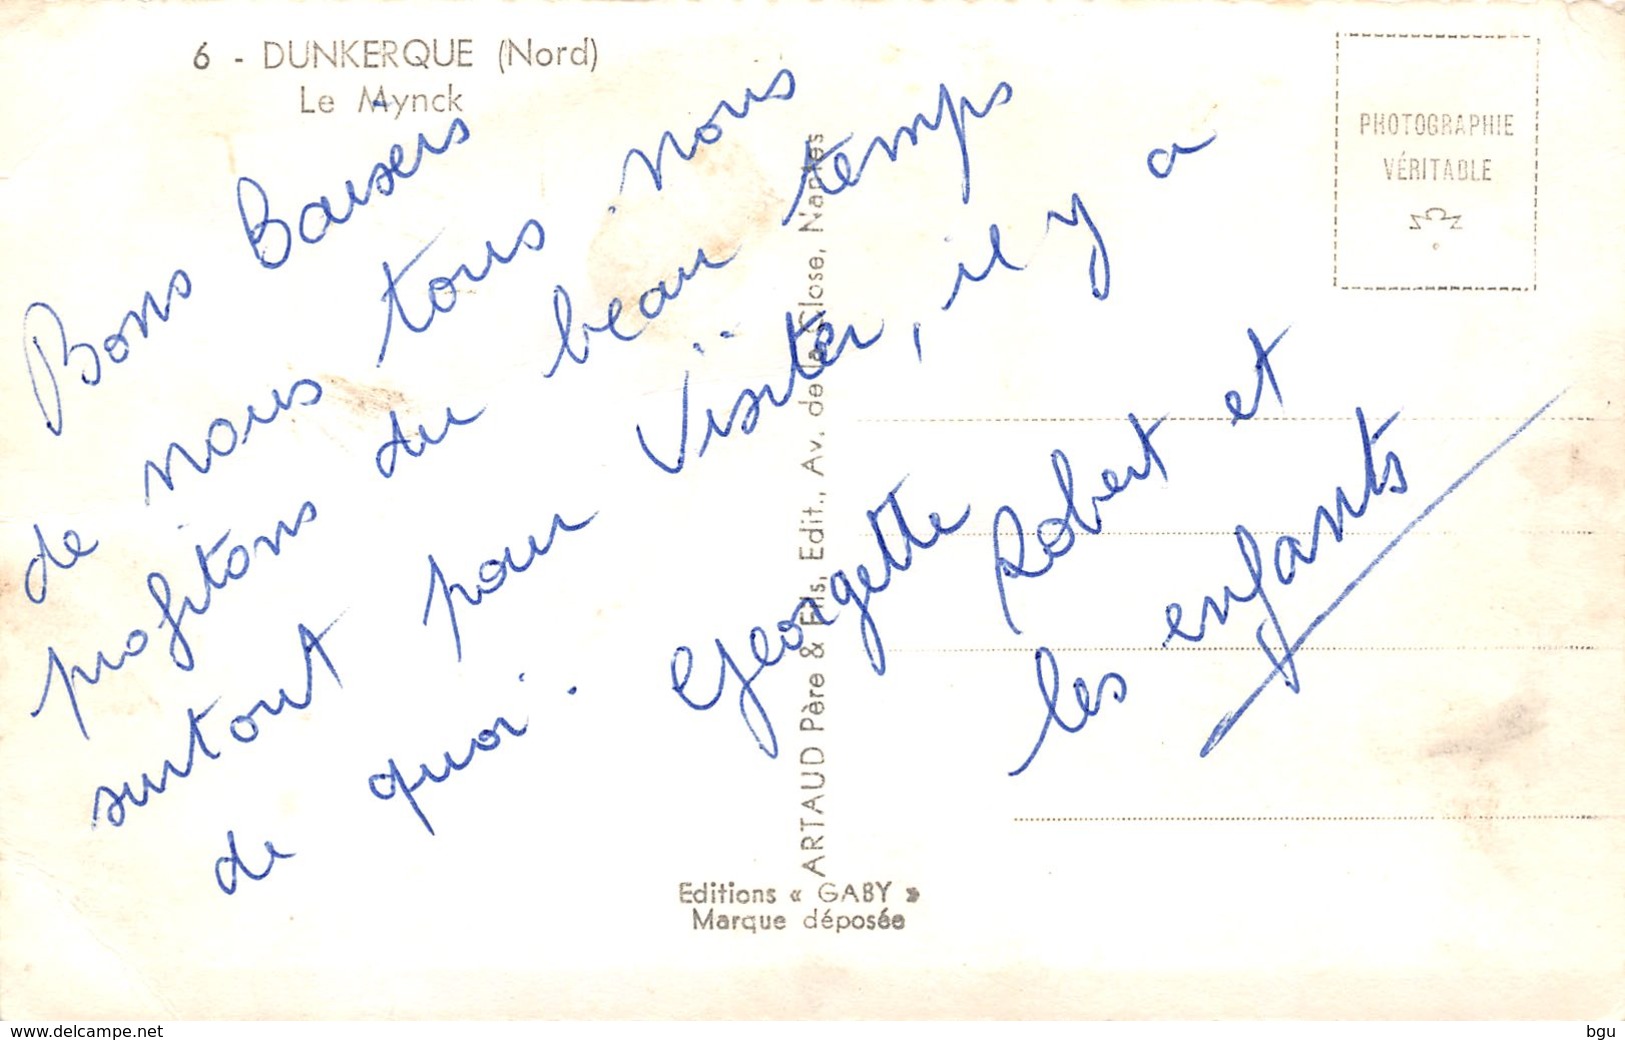 6 - DUNKERQUE (Nord)
Le Mynck
PHOTOGRAPHIE
VÉRITABLE
Bons Baisers
de nous tous. nous
profitons du beau temps
surtout pour visiter, il y a
de quoi. Georgette Robert et
les enfants
ARTAUD Père & Fils, Edit., Av. de la Close, Nantes
Editions « GABY »
Marque déposée
www.delcampe.net
bgu